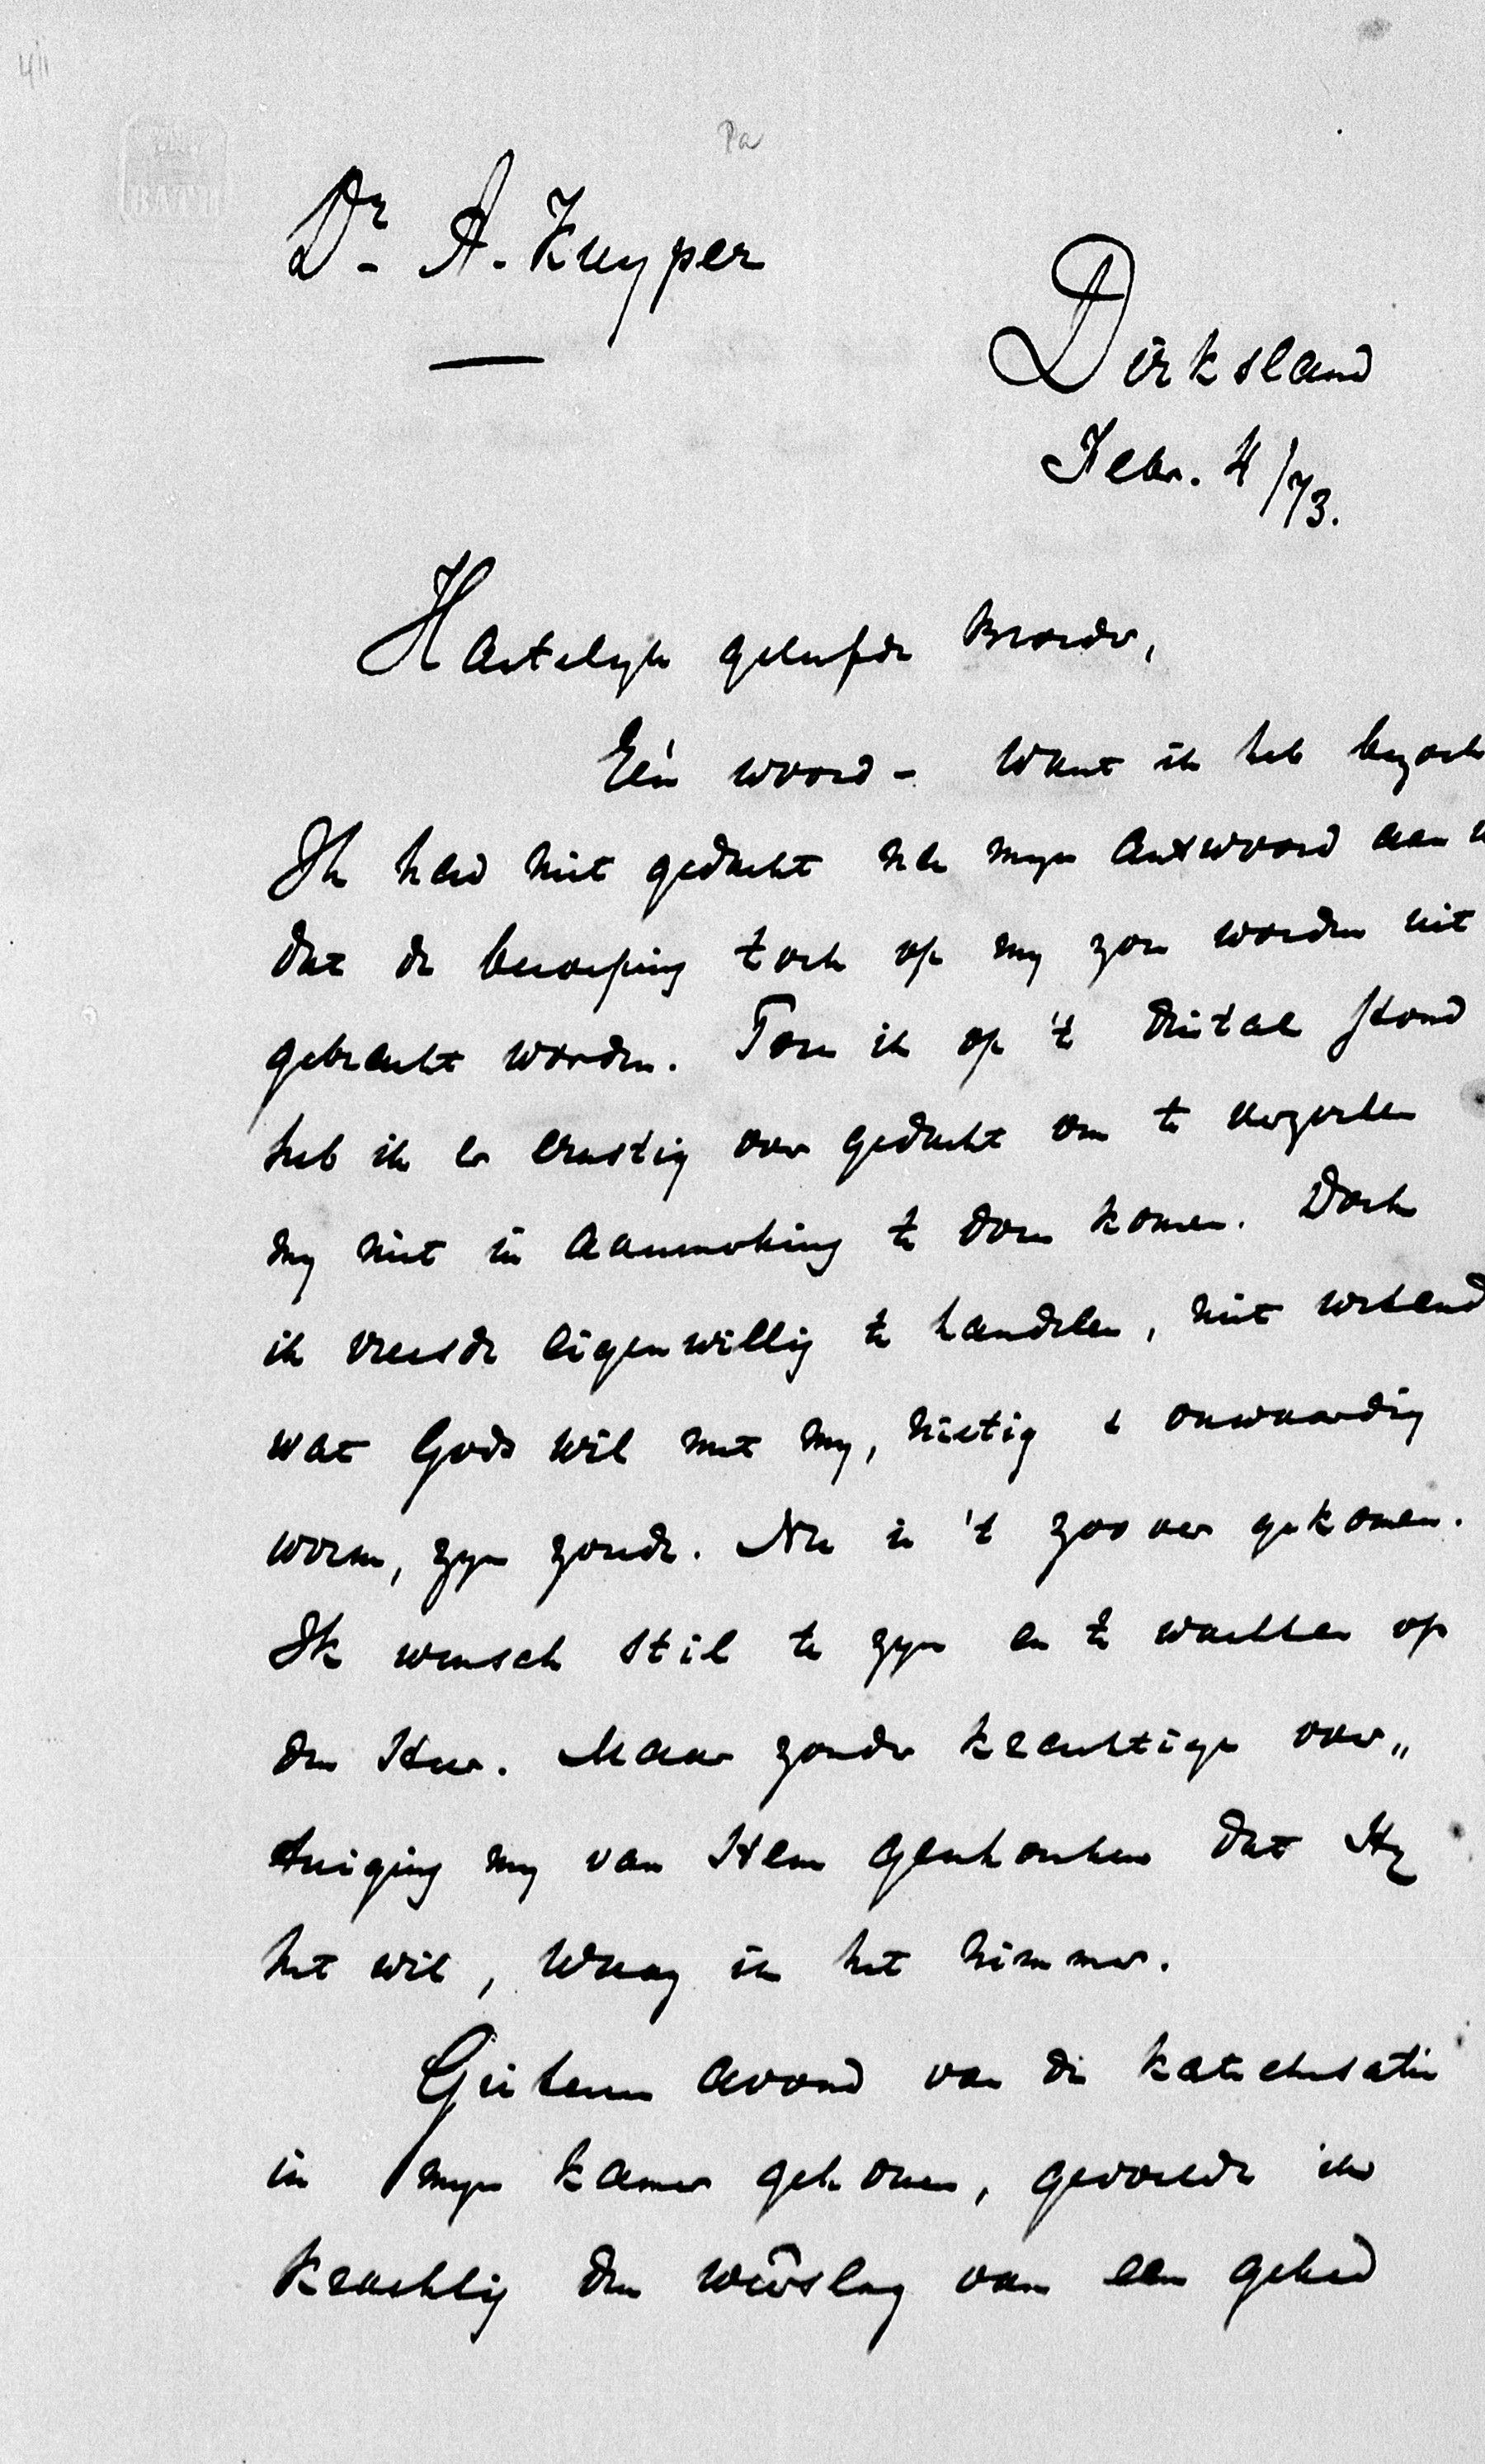 411
Pa
BATH
Dr A. Kuyper
Dirksland
Febr. 4/73.
Hartelyk geliefde Broeder,
Eén woord – want ik heb bezoek
Ik had niet gedacht na myn antwoord aan u
dat de beroeping toch op my zou worden uit
gebracht worden. Toen ik op 't drietal stond
heb ik er ernstig over gedacht om te verzoeken
my niet in aanmerking te doen komen. Doch
ik vreesde eigenwillig te handelen, niet wetend
wat Gods wil met my, nietig & onwaardig
worm, zyn zoude. Nu is 't zoo ver gekomen.
Ik wensch stil te zyn en te wachten op
den Heer. Maar zonder krachtige over„
tuiging my van Hem geschonken dat Hy
het wil, waag ik het nimmer.
Gisteren avond van de katechisatie
in myn kamer gekomen, gevoelde ik
krachtig den weêrslag van een gebed